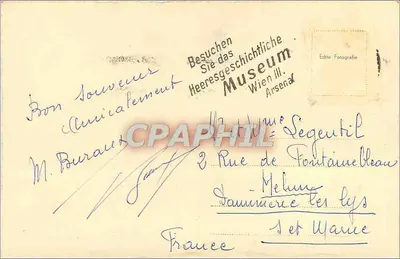 Besuchen
Sie das
Heeresgeschichtliche
Museum
Wien III.
Arsenal
Echte Fotografie
Bon souvenir
Amicalement
M. Buraux
CPAPHIL
Mme Legentil
2 Rue de Fontainebleau
Melun
Dammerie les lys
S et Marne
France